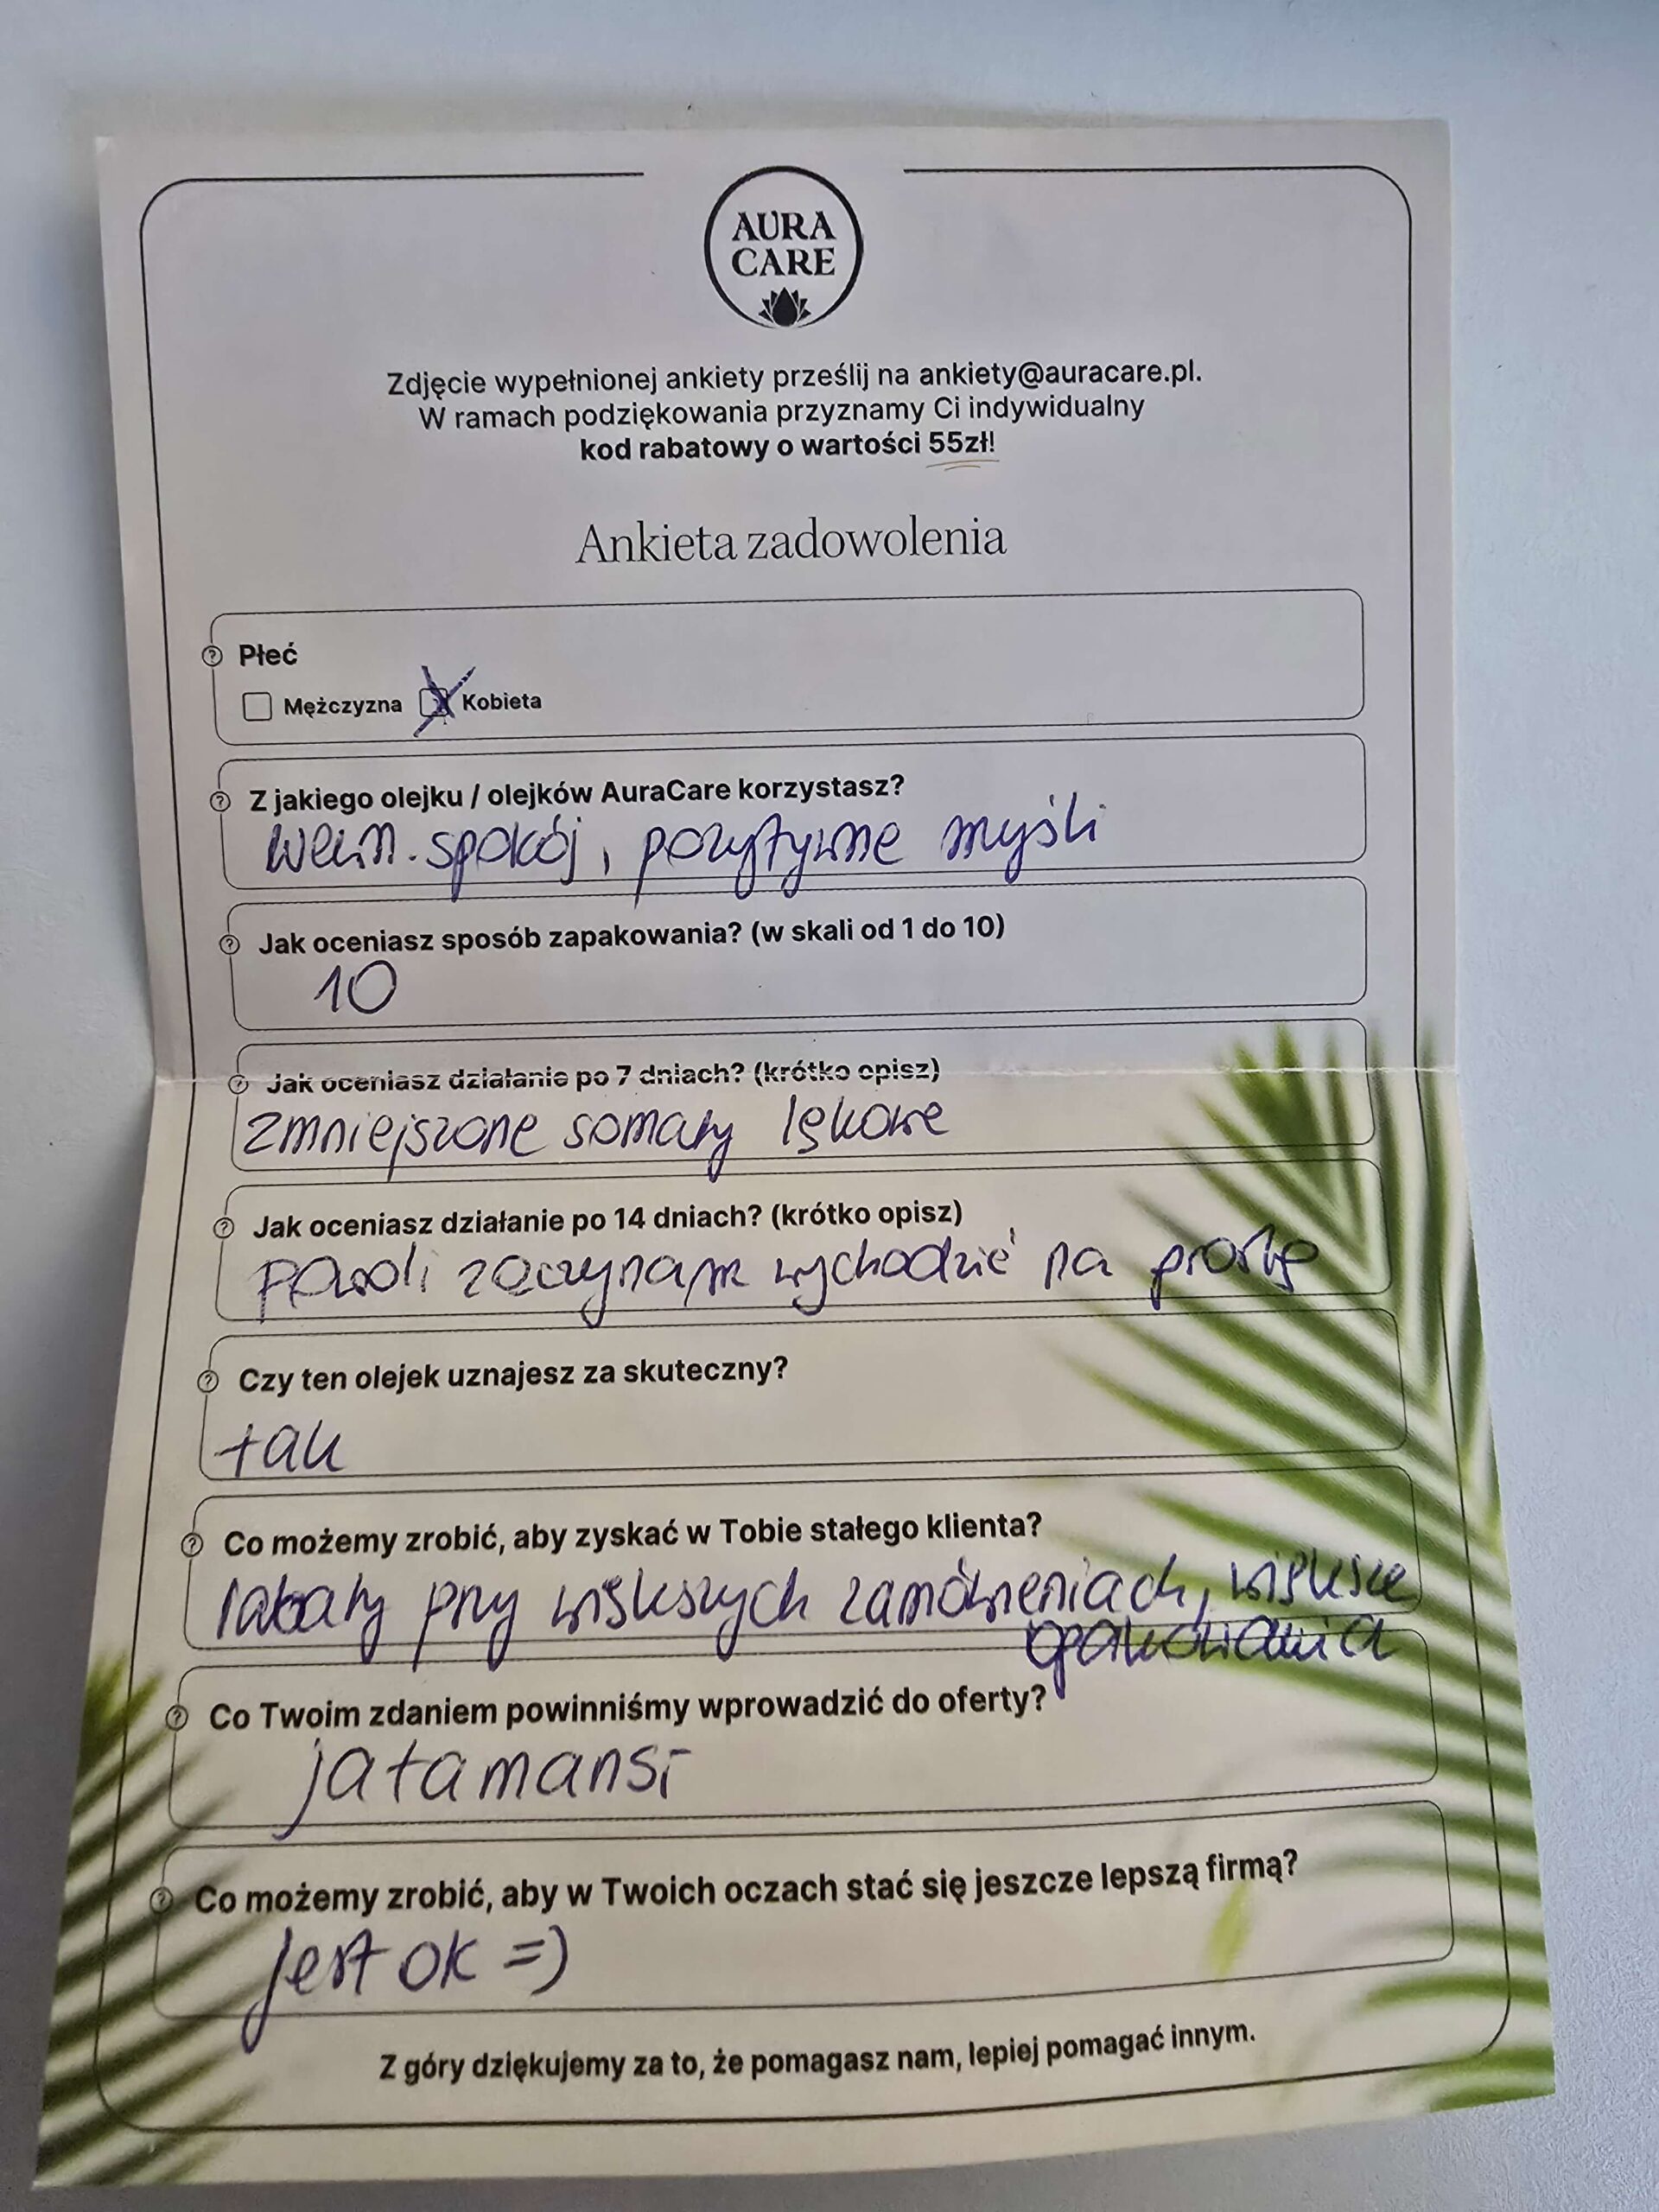 AURA
CARE
Zdjęcie wypełnionej ankiety prześlij na ankiety@auracare.pl.
W ramach podziękowania przyznamy Ci indywidualny
kod rabatowy o wartości 55zł!
Ankieta zadowolenia
Płeć
Mężczyzna Kobieta
Z jakiego olejku / olejków AuraCare korzystasz?
wewn. spokój, pozytywne myśli
Jak oceniasz sposób zapakowania? (w skali od 1 do 10)
10
Jak oceniasz działanie po 7 dniach? (krótko opisz)
zmniejszone somaty lękowe
Jak oceniasz działanie po 14 dniach? (krótko opisz)
powoli zaczynam wychodzić na prostę
Czy ten olejek uznajesz za skuteczny?
tak
Co możemy zrobić, aby zyskać w Tobie stałego klienta?
rabaty przy większych zamówieniach, większe
opakowania
Co Twoim zdaniem powinniśmy wprowadzić do oferty?
jatamansi
Co możemy zrobić, aby w Twoich oczach stać się jeszcze lepszą firmą?
jest ok =)
Z góry dziękujemy za to, że pomagasz nam, lepiej pomagać innym.